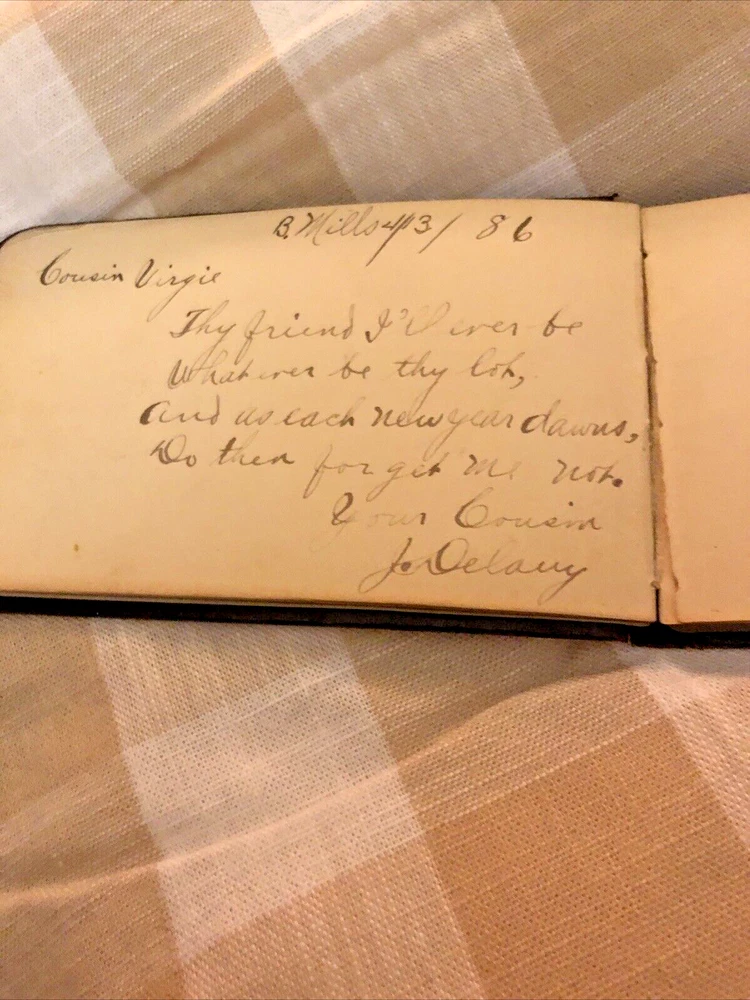 B. Mills 4/13/86
Cousin Virgie
Thy friend I'll ever be
Whatever be thy lot,
And as each new year dawns,
Do then forget me not.
Your Cousin
Jo Delany